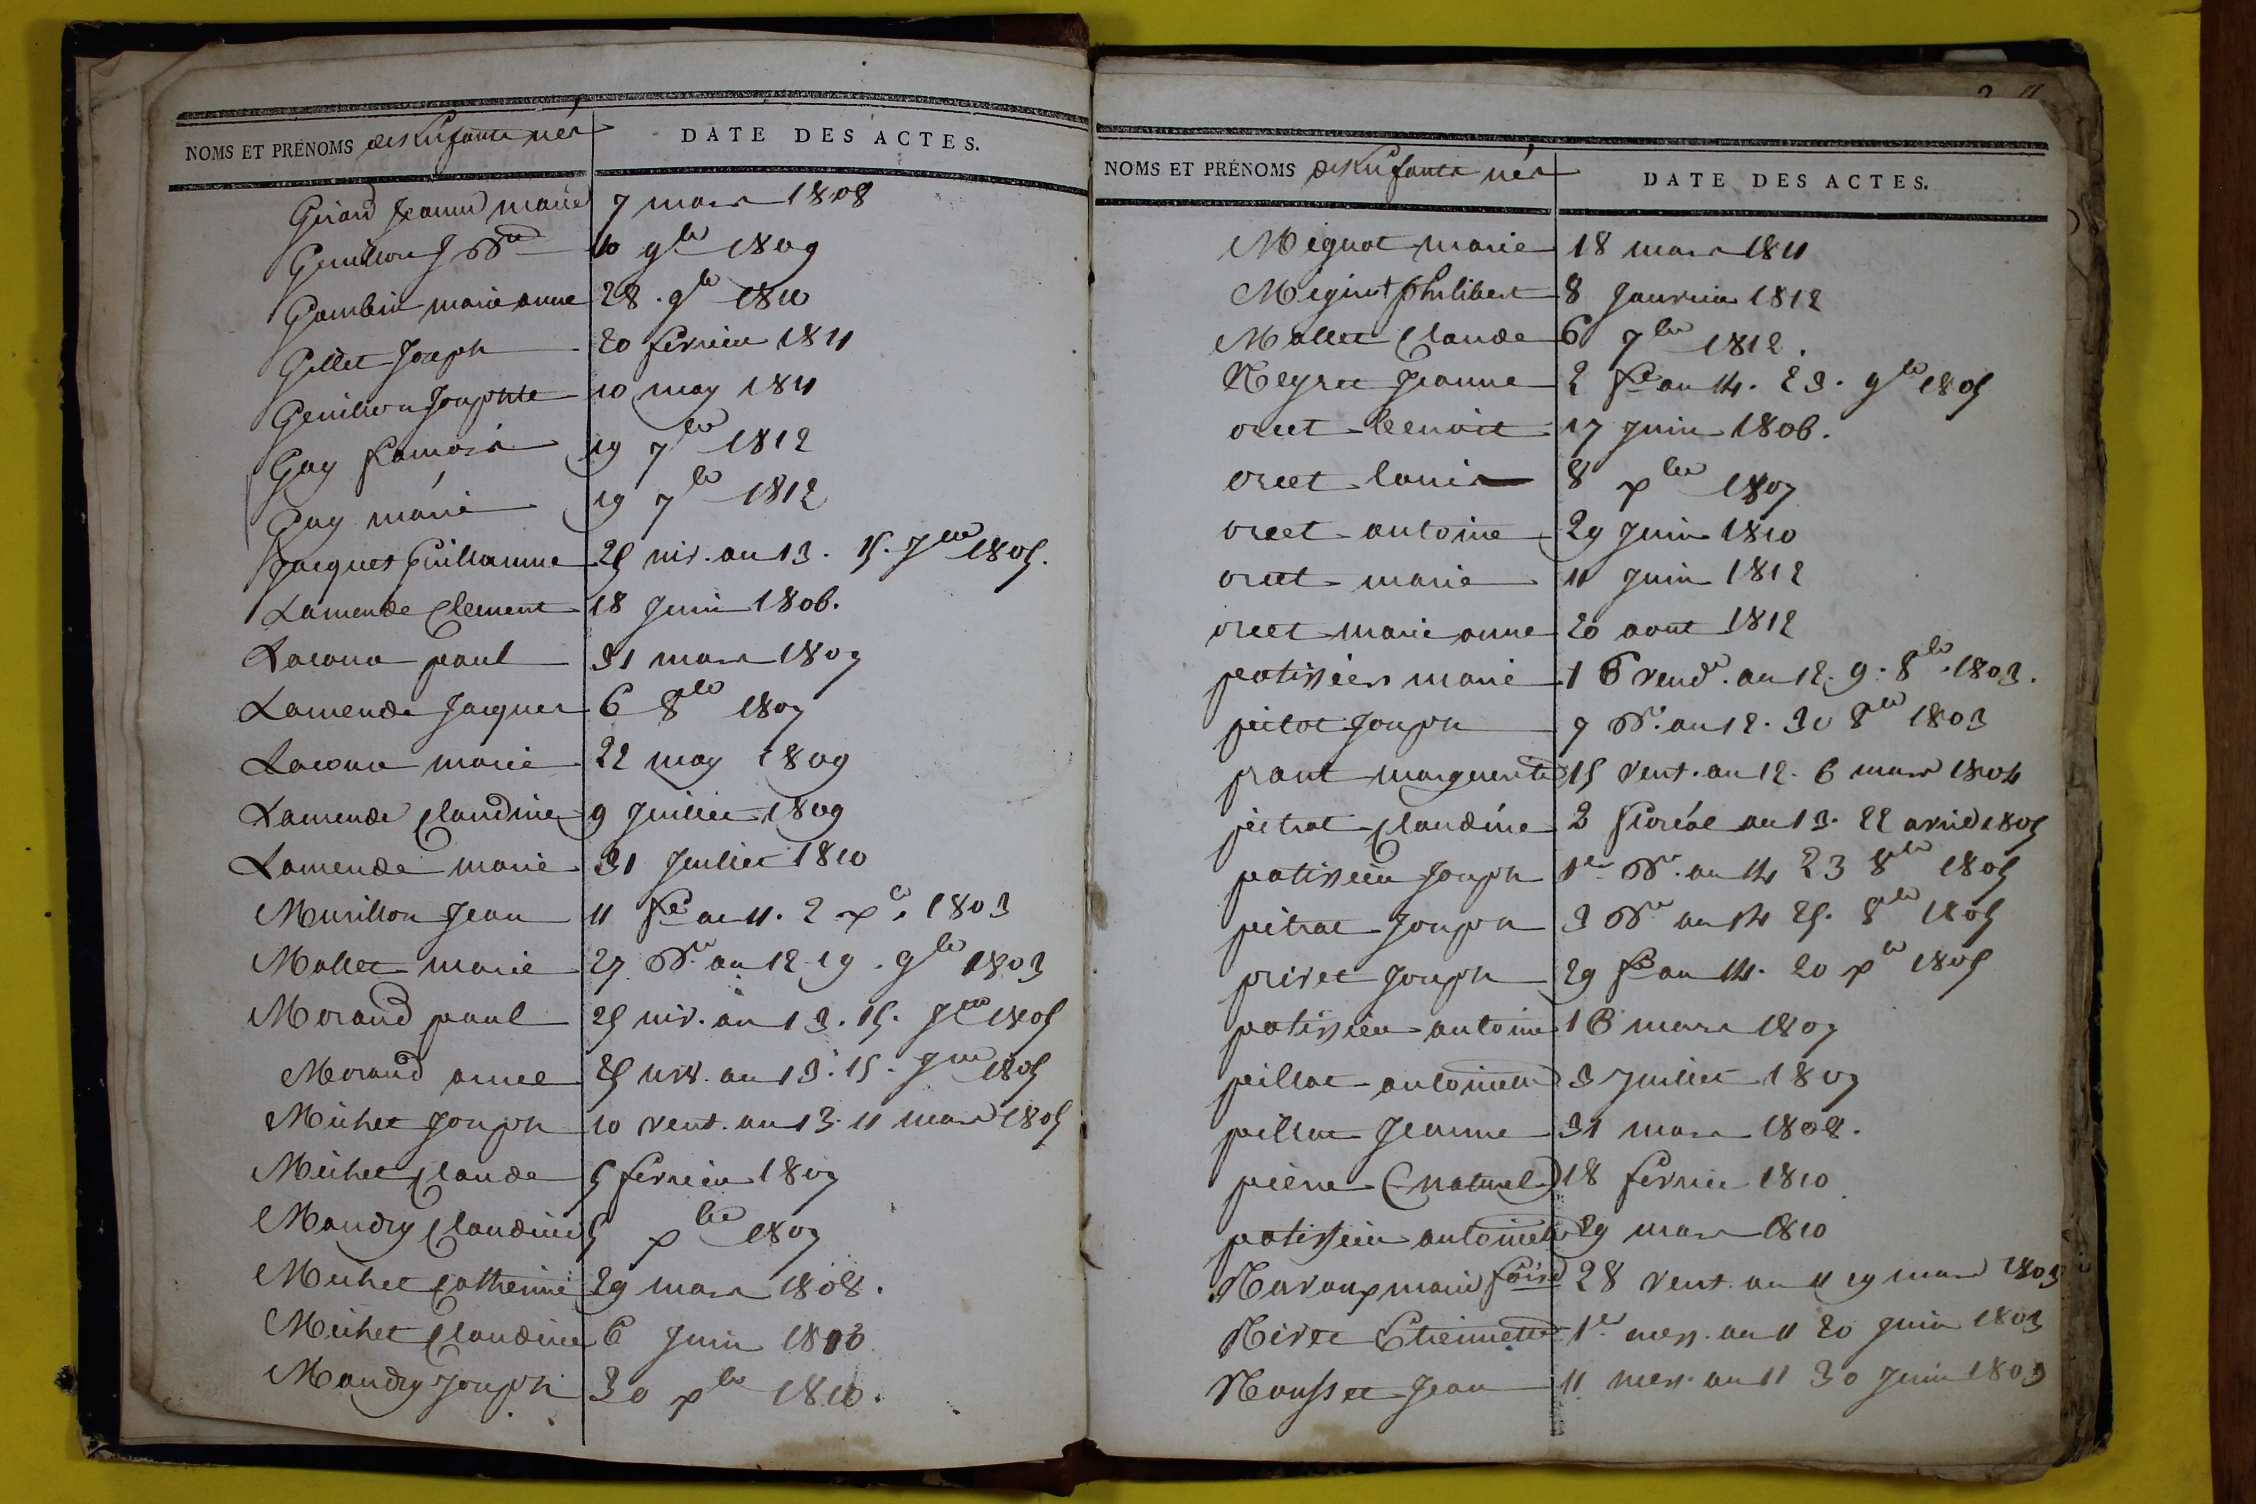 NOMS ET PRÉNOMS des Enfants nés
DATE DES ACTES.
Girard Jeanne marie 7 mars 1808
Genillon J Bte 10 9bre 1809
Gambin marie anne 28. 9bre 1810
Gillet Joseph 20 fevrier 1811
Genillon Josephte 10 may 1811
Guy francois 19 7bre 1812
Guy marie 19 7bre 1812
Jacquet Guillaume 25 niv. an 13. 15. Jer 1805.
Lamende Clement 18 Juin 1806.
Lacour paul 31 mars 1807
Lamende Jacques 6 8bre 1807
Lacour marie 22 may 1809
Lamende Claudine 9 Juillet 1809
Lamende marie 31 Juillet 1810
Murillon Jean 11 fre an 11. 2 xe. 1803
Mallet marie 27 Bre an 12 19. 9bre 1803
Morand paul 25 niv. an 13. 15. Jer 1805
Morand anne 25 niv. an 13. 15. Jer 1805
Michet Joseph 10 vent. an 13. 11 mars 1805
Michet Claude 5 fevrier 1807
Mandry Claudine 5 xbre 1807
Michet Catherine 29 mars 1808.
Michet Claudine 6 Juin 1810
Mandry Joseph 30 xbre 1810.
NOMS ET PRÉNOMS des Enfants nés
DATE DES ACTES.
Mignot marie 18 mars 1811
Mignot philibert 8 Janvier 1812
Mallet Claude 6 7bre 1812.
Neyret Jeanne 2 fre an 14. 23. 9bre 1805
orcet Benoit 17 Juin 1806.
orcet louis 8 xbre 1807
orcet antoine 29 Juin 1810
orcet marie 11 Juin 1812
orcet marie anne 20 aout 1812
patissier marie 16 vendre. an 12. 9. 8bre. 1803.
pitot Joseph 7 Bre. an 12. 30 8bre 1803
prant marguerite 15 vent. an 12. 6 mars 1804
pitrat Claudine 2 floréal an 13. 22 avril 1805
patissier Joseph 1er Bre. an 14 23 8bre 1805
pitrat Joseph 3 Bre an 14 25. 8bre 1805
privet Joseph 29 fre an 14. 20 xbre 1805
patissier antoine 16 mars 1807
pillat antoinette 3 Juillet 1807
pillat Jeanne 31 mars 1808.
pierre (naturel) 18 fevrier 1810
patissier antoinette 29 mars 1810
Ravaux marie foise 28 vent. an 11 19 mars 1803
Rivet Etiennette 1er mess. an 11 20 juin 1803
Rousset Jean 11 mess. an 11 30 Juin 1803